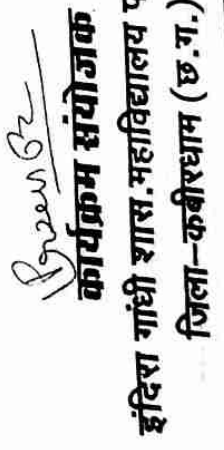 कार्यक्रम संयोजक
इंदिरा गांधी शास. महाविद्यालय प
जिला–कबीरधाम (छ.ग.)